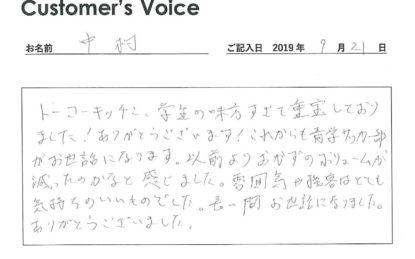 Customer's Voice
お名前 中村 ご記入日 2019年 9月 21日
トーコーキッチン、学生の味方すぎて重宝しており
ました！ありがとうございます！これからも青学サッカー部
がお世話になります。以前よりおかずのボリュームが
減ったのかなと感じました。雰囲気や接客はとても
気持ちのいいものでした。長い間お世話になりました。
ありがとうございました。